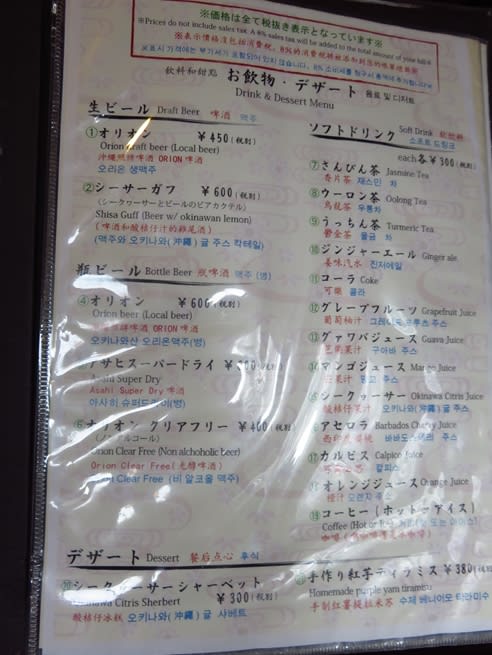 ※価格は全て税抜き表示となっています※
※Prices do not include sales tax. A 8% sales tax will be added to the total amount of your bill※
※表示價格沒包括消費税。8%的消費税將被添加到您的帳單總費用
飲料和甜點 お飲物・デザート 음료 및 디저트
Drink & Dessert Menu
生ビール Draft Beer 啤酒 맥주
①オリオン ¥450(税別)
Orion draft beer (Local beer)
ORION 啤酒
오리온 생맥주
②シーサーガフ ¥600(税別)
(シークヮーサーとビールのビアカクテル)
Shisa Guff (Beer w/ okinawan lemon)
(啤酒和酸桔仔汁的雞尾酒)
(맥주와 오키나와(沖縄) 귤 주스 칵테일)
瓶ビール Bottle Beer 瓶啤酒 맥주 (병)
④オリオン ¥600(税別)
Orion beer (Local beer)
ORION 啤酒
오키나와산 오리온맥주(병)
アサヒスーパードライ
Asahi Super Dry
Asahi Super Dry 啤酒
아사히 슈퍼드라이(병)
⑥オリオン クリアフリー ¥400(税別)
(ノンアルコール)
Orion Clear Free (Non alchoholic Beer)
Orion Clear Free(无醇啤酒)
Orion Clear Free (비 알코올 맥주)
ソフトドリンク Soft Drink 軟飲料
소프트 드링크
each各¥300(税別)
⑦さんぴん茶 Jasmine Tea
香片茶 재스민 차
⑧ウーロン茶 Oolong Tea
烏龍茶 우롱차
⑨うっちん茶 Turmeric Tea
鬱金茶 울금 차
⑩ジンジャーエール Ginger ale
姜味汽水 진저에일
⑪コーラ Coke
可樂 콜라
⑫グレープフルーツ Grapefruit Juice
葡萄柚汁 그레이프 후루츠 주스
⑬グァバジュース Guava Juice
芭樂果汁 구아바 주스
⑭マンゴジュース Mango Juice
芒果汁 망고 주스
⑮シークヮーサー Okinawa Citrus Juice
酸桔仔果汁 오키나와(沖縄)귤 주스
⑯アセロラ Barbados Charry Juice
바바도스체리 주스
⑰カルピス Calpico Juice
칼피스
⑱オレンジジュース Orange Juice
橙汁 오렌지 주스
⑲コーヒー(ホット・アイス)
Coffee (Hot or Ice)
デザート Dessert 餐后点心 후식
⑳シークヮーサーシャーベット ¥300(税別)
Okinawa Citris Sherbert
酸桔仔冰糕 오키나와(沖縄)귤 샤베트
手作り紅芋ティラミス ¥380(税別)
Homemade purple yam tiramisu
手制紅薯提拉米苏 수제 베니이모 타라미수